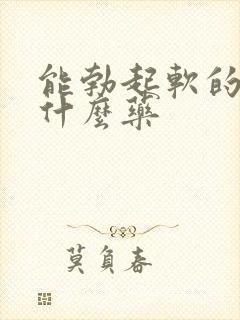 能勃起軟的
什麼藥
莫負春